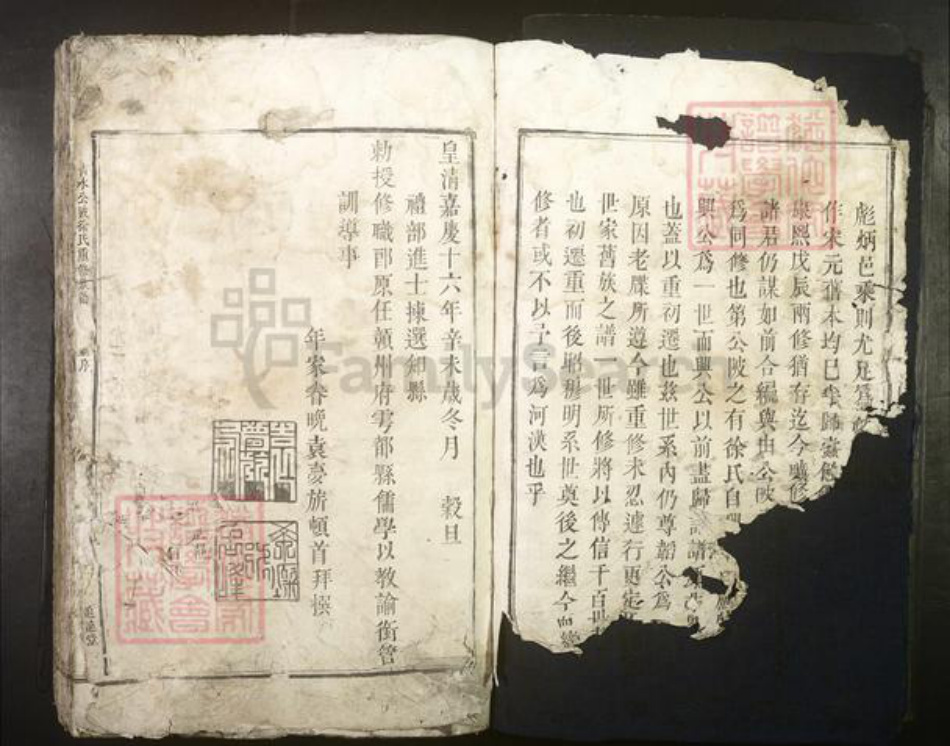 彪炳邑乘則尤足
作宋元舊本均已
康熙戊辰兩修猶存迄今曠修
諸君仍謀如前合編與由公陂
為同修也第公陂之有徐氏自
興公為一世而興公以前盡歸
也蓋以重初遷也茲世系內仍尊韜公為
原因老牒所遵今雖重修未忍遽行更定
世家舊族之譜一世所修將以傳信千百世
也初遷重而後昭穆明系世奠後之繼今而
修者或不以予言為河漢也乎
皇清嘉慶十六年辛未歲冬月 穀旦
禮部進士揀選知縣
勅授修職郎原任贛州府雩都縣儒學以教諭銜管
訓導事
年家眷晚袁夢旂頓首拜撰
水公陂徐氏重修族譜
序
追遠堂
FamilySearch